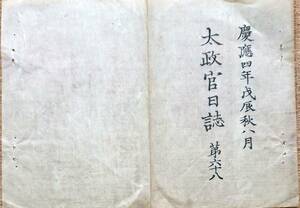 慶應四年戊辰秋八月
太政官日誌 第六十八